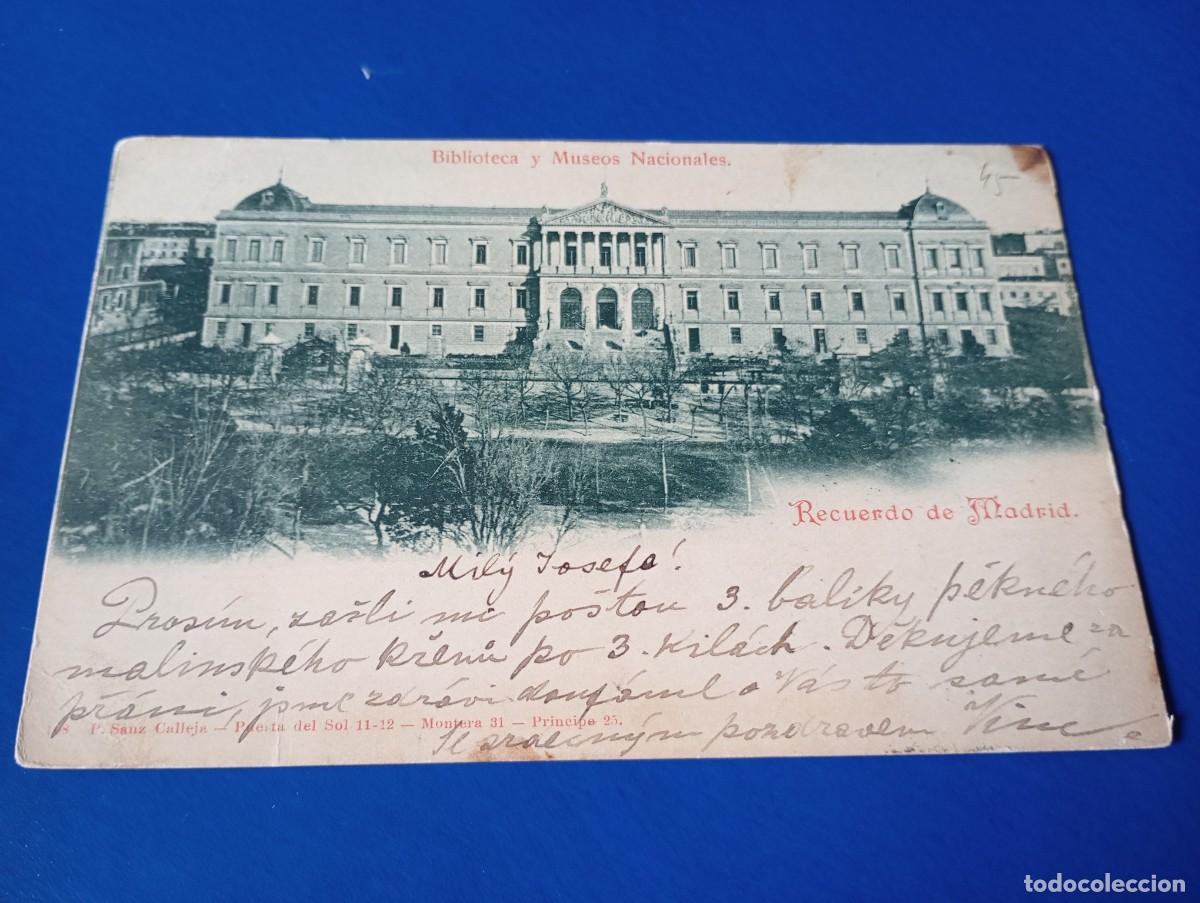 Biblioteca y Museos Nacionales.
45-
Recuerdo de Madrid.
Milý Josefe!
Prosím, zašli mi poštou 3. balíky pěkného
malinského křenů po 3. Kilách. Děkujeme za
přání, jsme zdrávi doufáme o Vás to samé
8 P. Sanz Calleja — Puerta del Sol 11-12 — Montera 31 — Principe 25.
Se srdečným pozdravem Vinc.
todocoleccion